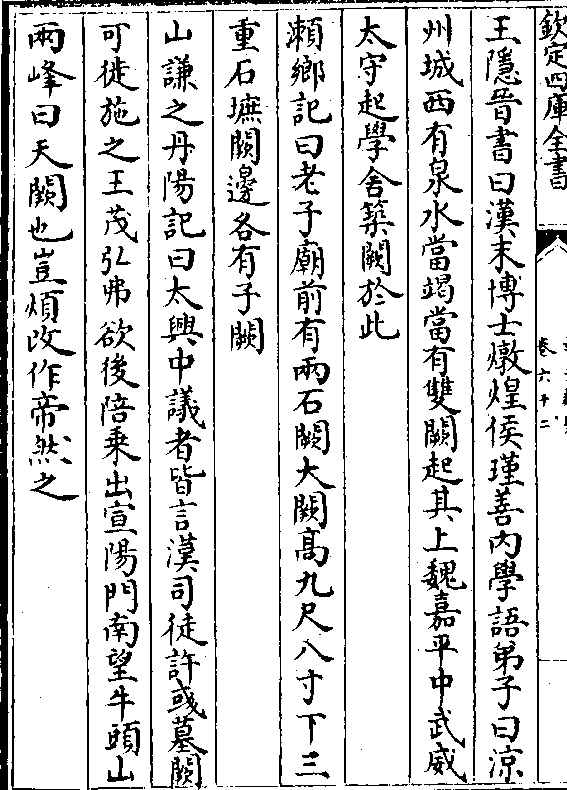 欽定四庫全書
卷六十二
王隱晉書曰漢末博士燉煌侯瑾善内學語弟子曰涼
州城西有泉水當竭當有雙闕起其上魏嘉平中武威
太守起學舍築闕於此
瀨鄉記曰老子廟前有兩石闕大闕高九尺八寸下三
重石墌闕邊各有子闕
山謙之丹陽記曰太興中議者皆言漢司徒許彧墓闕
可徙施之王茂弘弗欲後陪乗出宣陽門南望牛頭山
兩峰曰天闕也豈煩改作帝然之